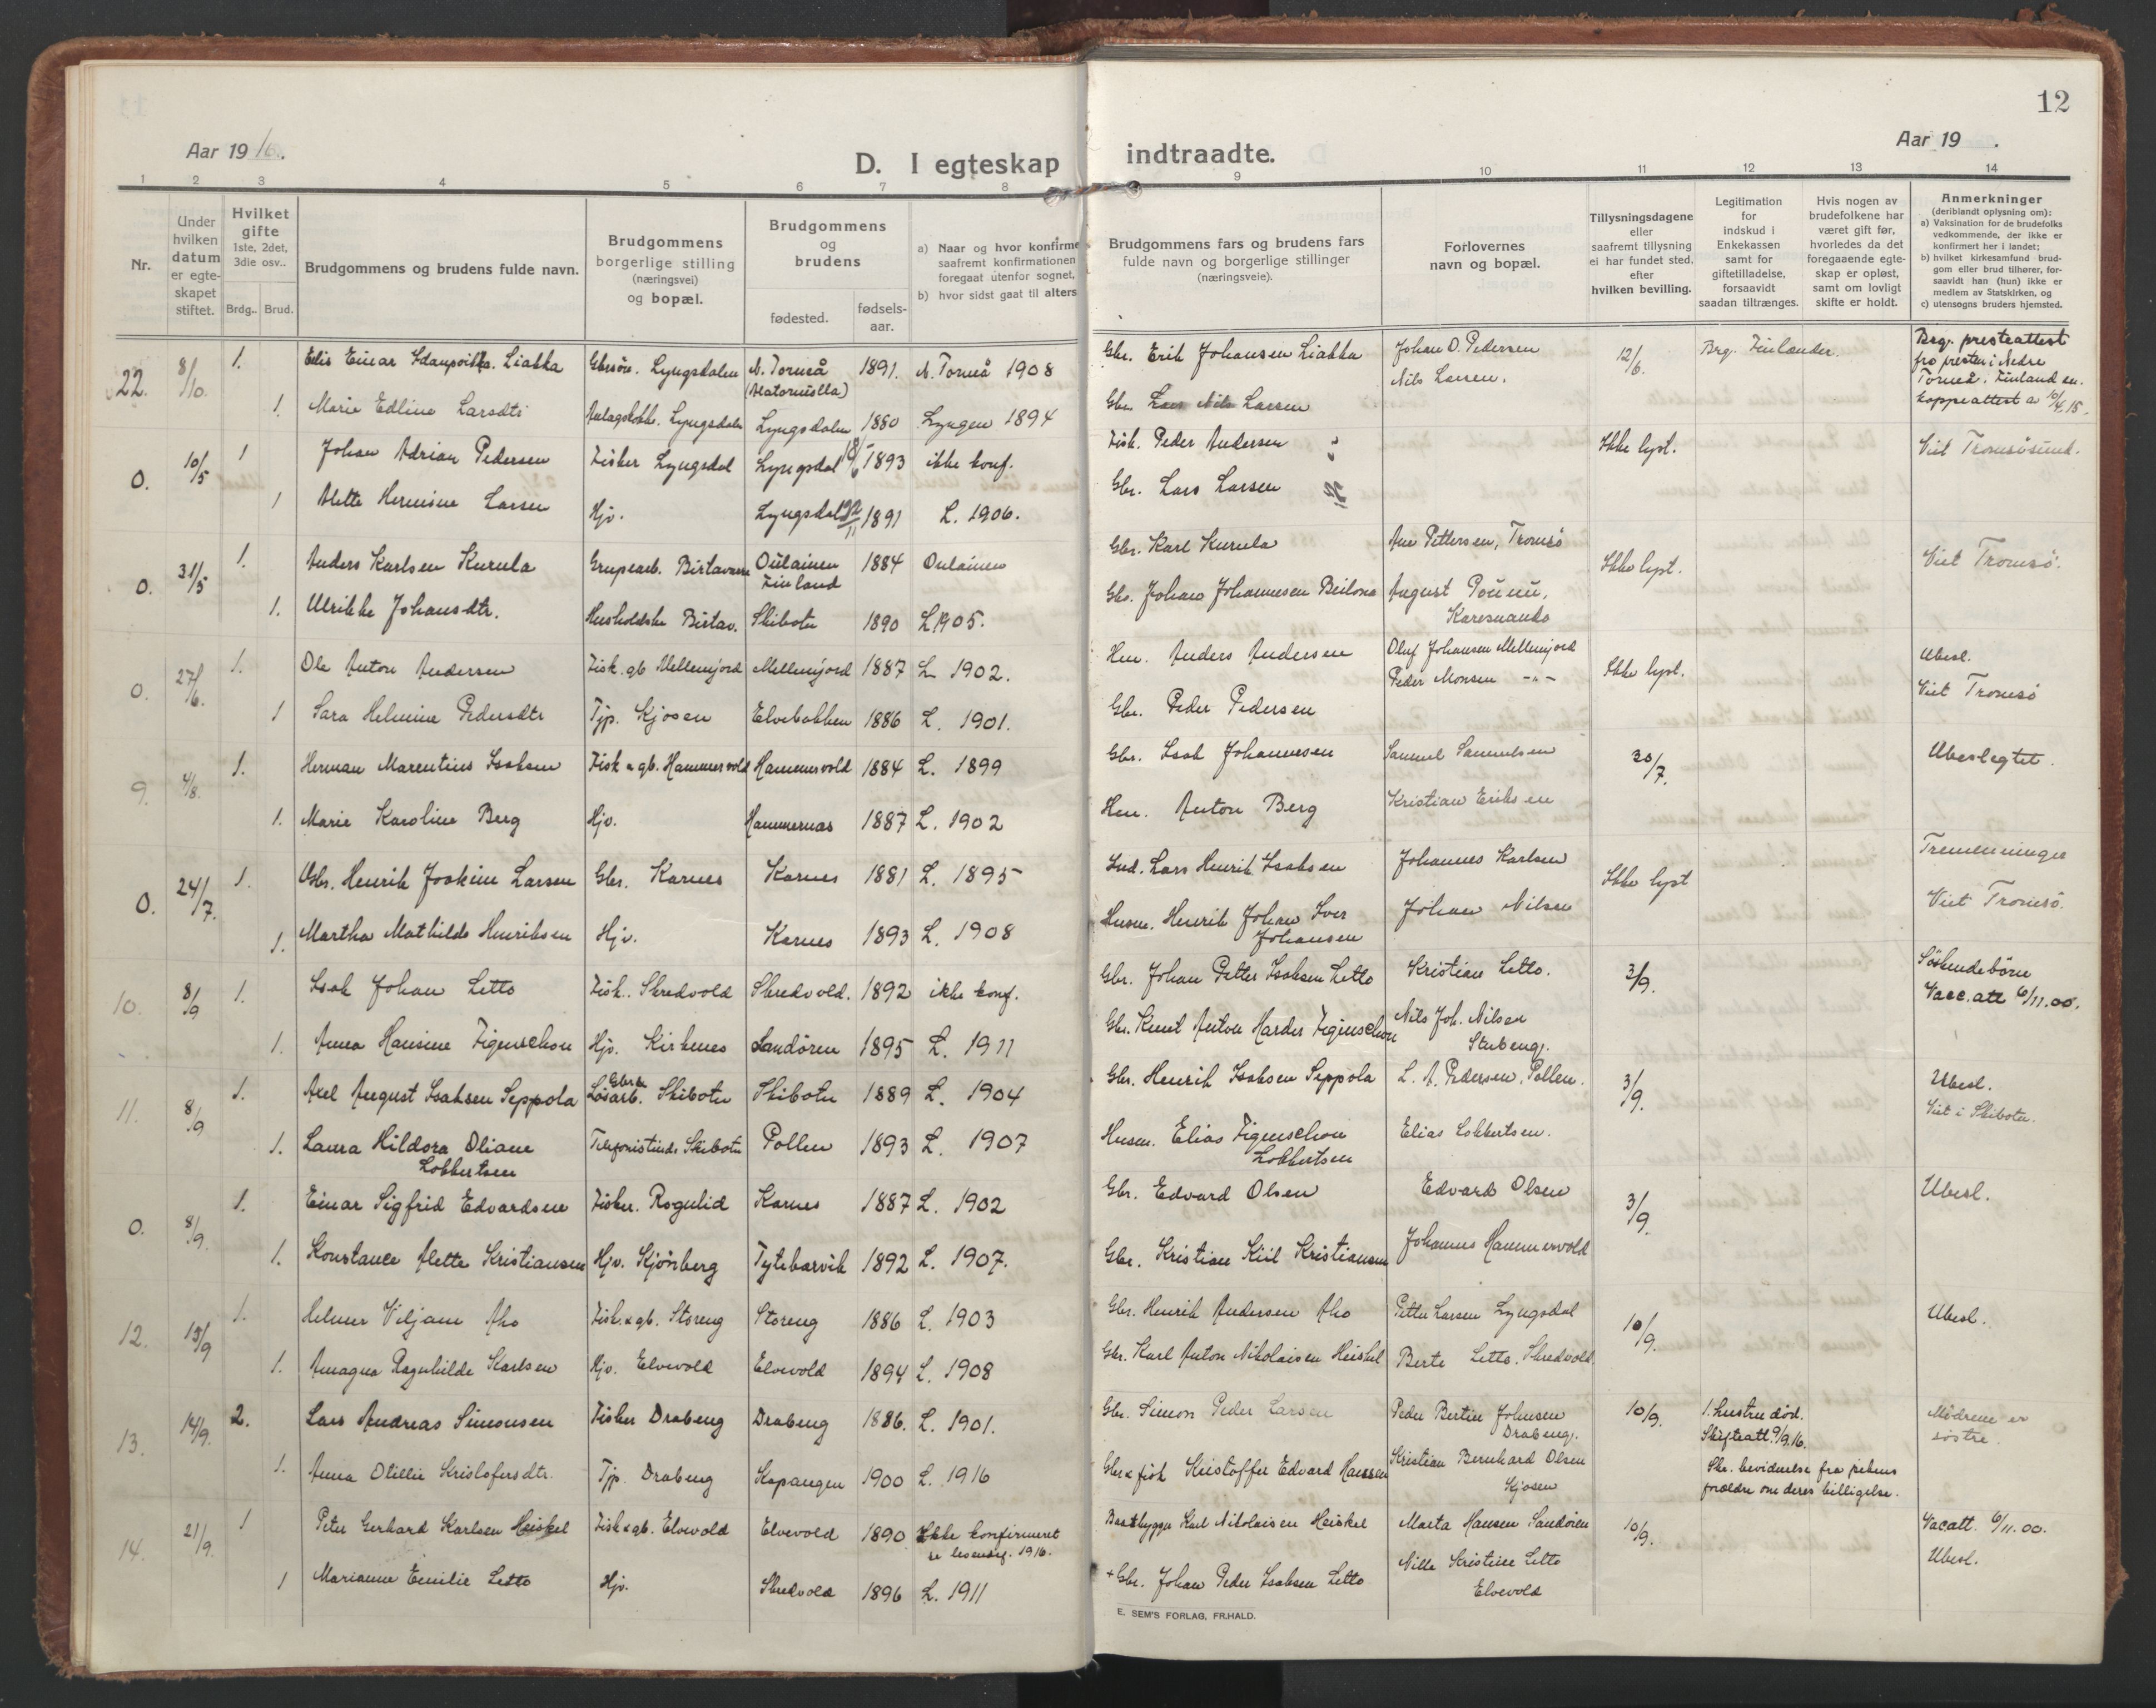 12
Aar 1916.
Aar 19 .
D. I egteskap indtraadte.
1 2 3 4 5 6 7 8 9 10 11 12 13 14
Nr.
Under hvilken datum er egte-skapet stiftet.
Hvilket gifte
1ste, 2det, 3die osv..
Brdg.. Brud.
Brudgommens og brudens fulde navn.
Brudgommens borgerlige stilling (næringsvei) og bopæl.
Brudgommens og brudens
fødested.
fødsels-aar.
a) Naar og hvor konfirme
saafremt konfirmationen
foregaat utenfor sognet,
b) hvor sidst gaat til alters
Brudgommens fars og brudens fars
fulde navn og borgerlige stillinger
(næringsveie).
Forlovernes
navn og bopæl.
Tillysningsdagene
eller
saafremt tillysning
ei har fundet sted,
efter
hvilken bevilling.
Legitimation
for
indskud i
Enkekassen
samt for
giftetilladelse,
forsaavidt
saadan tiltrænges.
Hvis nogen av
brudefolkene har
været gift før,
hvorledes da det
foregaaende egte-
skap er opløst,
samt om lovligt
skifte er holdt.
Anmerkninger
(deriblandt oplysning om):
a) Vaksination for de brudefolks
vedkommende, der ikke er
konfirmert her i landet;
b) hvilket kirkesamfund brud-
gom eller brud tilhører, for-
saavidt han (hun) ikke er
medlem av Statskirken, og
c) utensogns bruders hjemsted.
22. 8/10. 1. Einar Liakka Gbrsøn. Lyngsdalen N. Torneå 1891. N. Torneå 1908 Gbr. Erik Johansen Liakka Johan O. Pedersen 12/6. Brg. Finlænder. Brg. presteattest
(Alatornuolla) Nils Larsen. fra presten i Nedre
Torneå. Finland en.
1. Marie Edline Larsdtr Lyngsdalen Lyngsdalen 1880 Lyngen 1894 Gbr. Nils Larsen koppeattest a 10/4.15.
0. 10/5 1 Johan Adrian Pedersen Fisker Lyngsdal Lyngsdal 1893 ikke konf. Fisk. Peder Andersen Ikke lyst. Viet Tromsøsund.
1 Alette Hermine Larsen Hjv. Lyngsdal 1891 L. 1906. Gbr. Lars Larsen
0. 31/5 1. Anders Karlsen Kurula Grubearb. Birtavarre Oulainen 1884 Oulainen Gbr. Karl Kurula Ane Pettersen, Tromsö Ikke lyst. Viet Tromsö.
Finland
1. Ulrikke Johansdtr. Husholdske Birtav. Skibotn 1890 L 1905. Gbr. Johan Johannesen Beilona August
Karesuando
0. 27/6. 1. Ole Anton Andersen Fisk. gb Mellemjord Mellemjord 1887 L 1902. Hm. Anders Andersen Oluf Johansen Mellemjord Ikke lyst. Ubesl.
Peder Monsen -"- Viet Tromsö
1 Sara Helmine Pedersdtr Tjp. Kjosen Elvebakken 1886 L. 1901. Gbr. Peder Pedersen
9. 4/8. 1. Herman Marentius Isaksen Fisk & gb. Hammervold Hammervold 1884 L. 1899 Gbr. Isak Johannesen Samuel Samuelsen 30/7. Ubeslegtet.
1. Marie Karoline Berg Hjv. Hammernæs 1887 L. 1902 Hm. Anton Berg Kristian Eriksen
0. 24/7. 1. Henrik Joakim Larsen Gbr. Karnes Karnes 1881 L. 1895 Ind. Lars Henrik Isaksen Johannes Karlsen Ikke lyst Tremenninger
1. Martha Mathilde Henriksen Hjv. Karnes 1893 L. 1908 Husm. Henrik Johan Iver Johan Nilsen Viet Tromsö.
Johansen
10. 8/9 1. Isak Johan Letto Fisk. Skredvold Skredvold. 1892 ikke konf. Gbr. Johan Petter Isaksen Letto Kristian Letto. 3/9. Söskendebörn
Vacc.att 6/11.00.
1. Anna Hansine Figenschou Hjv. Kirkenes Sandören 1895 L. 1911 Gbr. Knut Anton Harder Figenschou Nils Joh. Nilsen
Stubeng.
11. 8/9 1. Axel August Isaksen Seppola Gbr.sn Løsarb. Skibotn Skibotn 1889 L. 1904 Gbr. Henrik Isaksen Seppola L. A. Pedersen, Pollen. 3/9. Ubesl.
Viet i Skibotn.
1. Laura Hildora Oliane Telefonistinde Skibotn Pollen 1893 L. 1907 Husm. Elias Figenschou Elias Lobbertsen.
Lobbertsen Lobbertsen
0. 8/9. 1. Einar Sigfrid Edvardsen Fisker. Rognlid Karnes 1887 L. 1902 Gbr. Edvard Olsen Edvard Olsen 3/9. Ubesl.
1. Konstance Alette Kristiansen Hjv. Kjönberg Tytebærvik 1892 L. 1907. Gbr. Kristian Kiil Kristiansen Johannes Hammervold
12. 13/9 1. Helmer Viljam Aho Fisk. & gb. Storeng Storeng 1886 L. 1903 Gbr. Henrik Andersen Aho Petter Larsen Lyngsdal 10/9. Ubesl.
1. Amagna Ragnhilde Karlsen Hjv. Elvevold Elvevold 1894 L. 1908 Gbr. Karl Anton Nikolaisen Heiskel Berte Letto. Skredvold.
13. 14/9. 2. Lars Andreas Simonsen Fisker Drabeng Drabeng 1886. L. 1901. Gbr. Simon Peder Larsen Peder Bertin Johnsen 10/9. 1. hustru död. Mödrene er
Drabeng. Skifteatt. 9/9.16. söstre.
1. Anna Otillie Kristofersdtr. Tjp. Drabeng Kopangen 1900 L. 1916 Gbr & fisk Kristoffer Edvard Hansen Kristian Bernhard Olsen Skr. bevidnelse fra pikens
Kjosen forældre om deres billigelse.
14. 21/9. 1 Peter Gerhard Karlsen Heiskel Fisk & gb. Elvevold Elvevold 1890 Ikke konfirmeret Baatbygger Karl Nikolaisen Heiskel Marta Hansen Sandören 10/9. Vacatt. 6/11.00.
1916. Ubesl.
1 Marianne Emilie Letto Hjv. Skredvold 1896 L. 1911 + Gbr. Johan Peder Isaksen Letto Nille Kristine Letto
Elvevold
E. SEM'S FORLAG, FR.HALD.